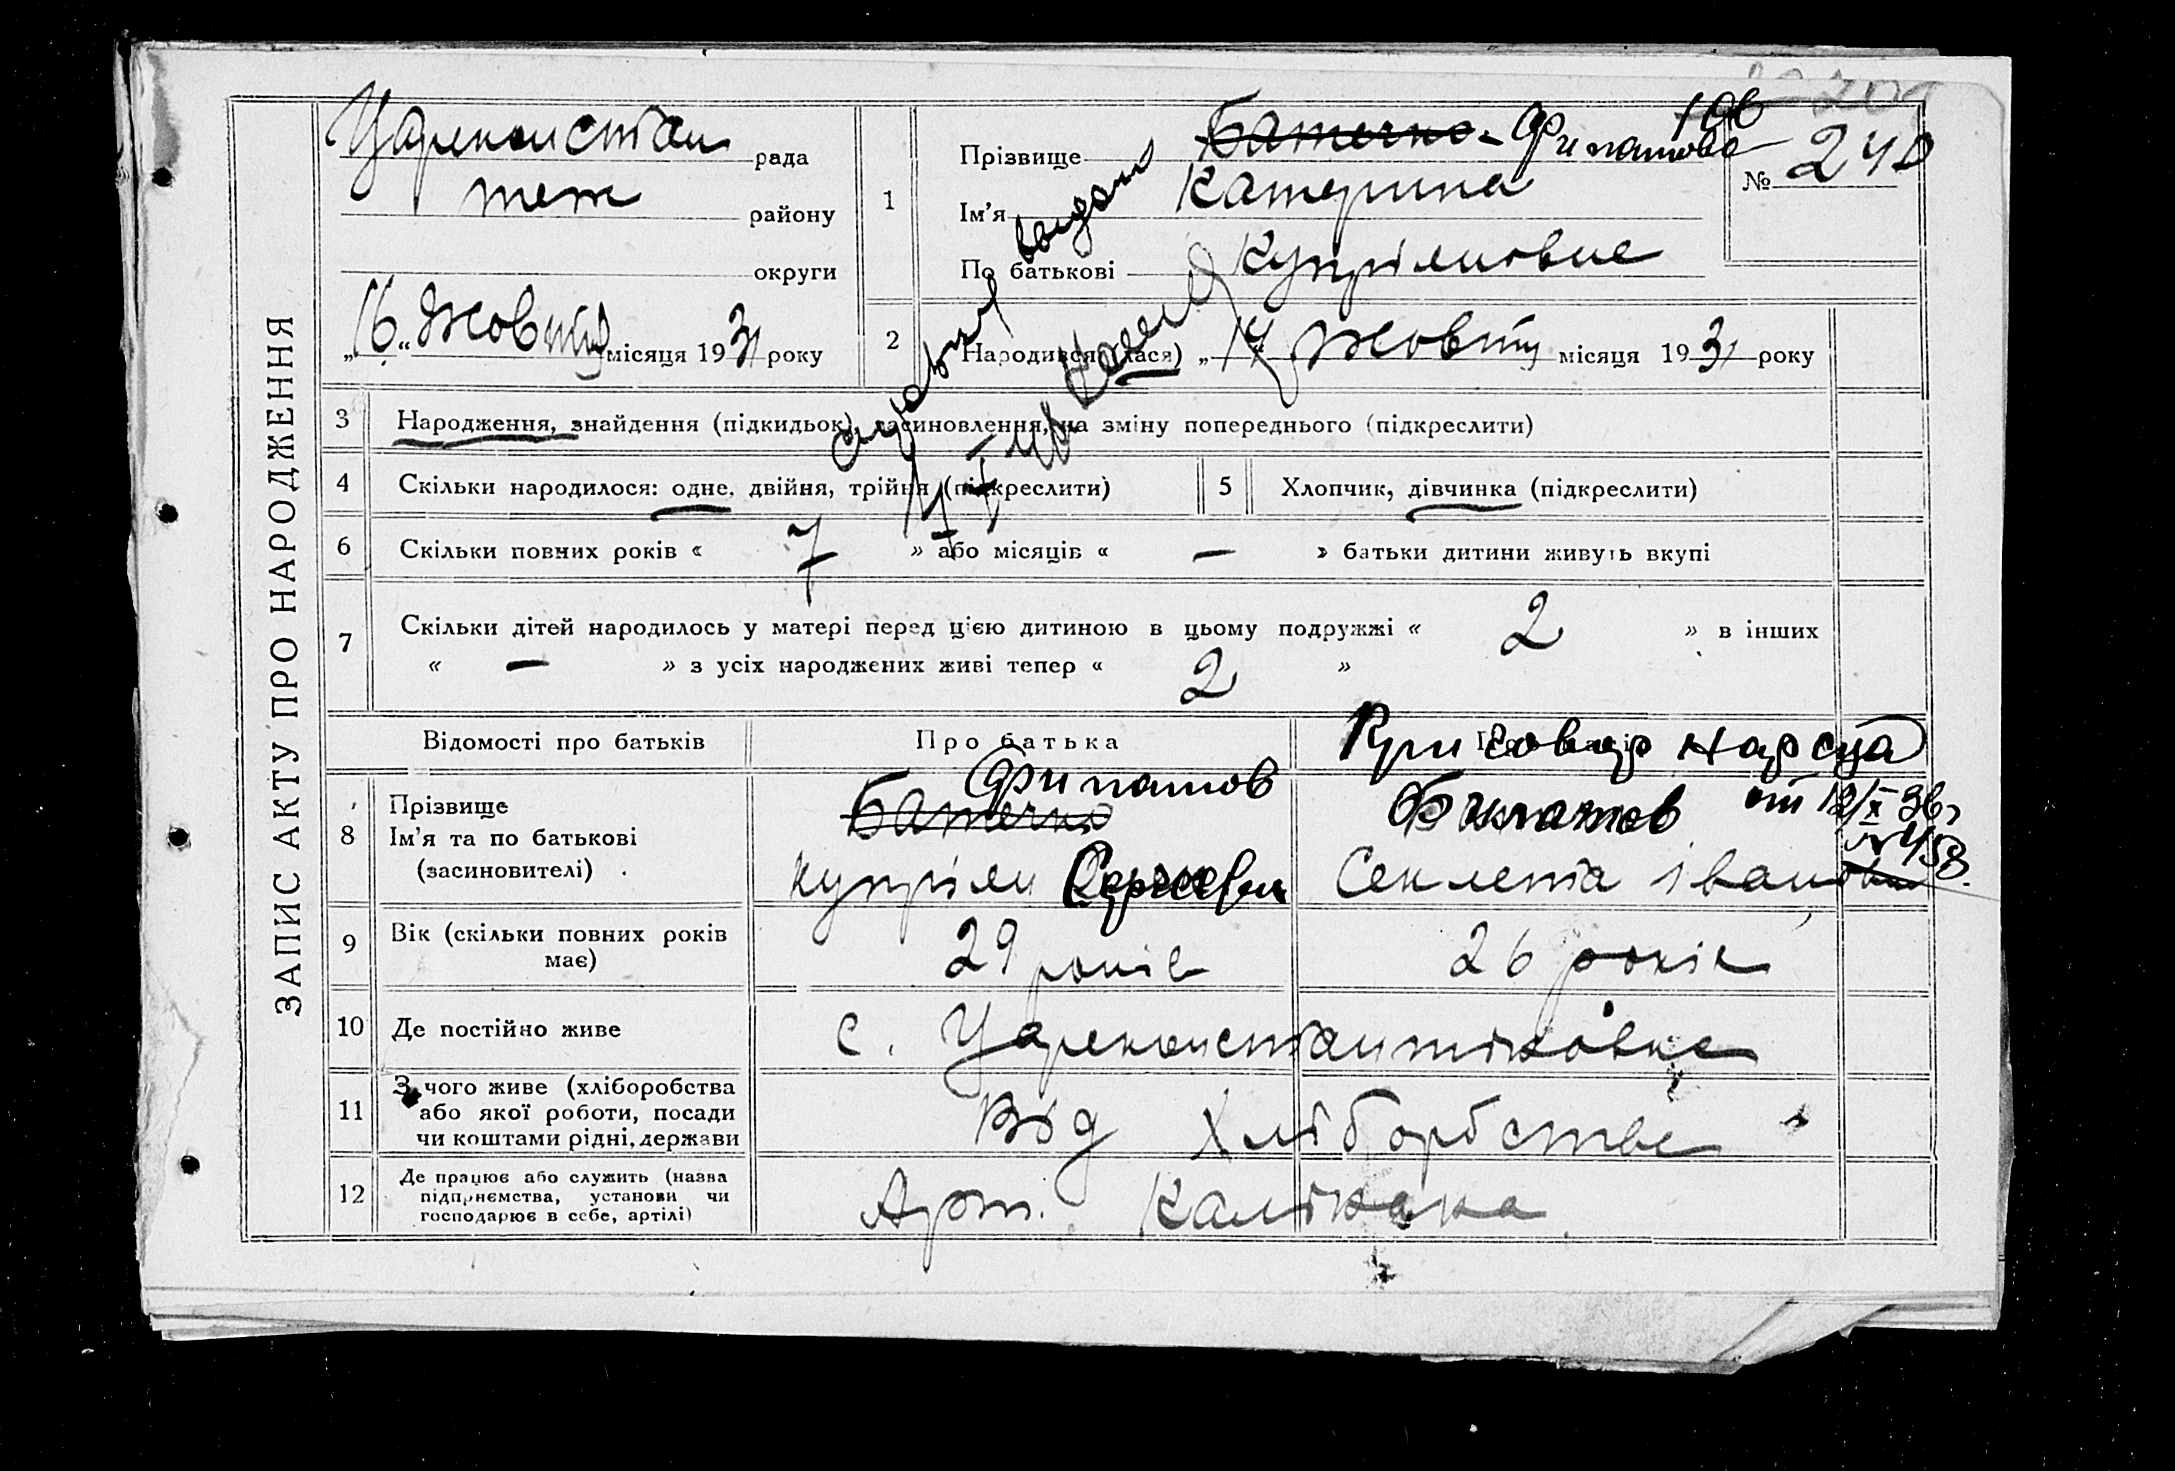 ЗАПИС АКТУ ПРО НАРОДЖЕННЯ
Цареконстан рада
теж району
округи
„16“ Жовтня місяця 1931 року
1
Прізвище Батечко - Филатова
Ім'я Катерина
По батькові Купріяновна
№ 240
2 Народився (лася) „14 Жовтня місяця 1931 року
3 Народження, знайдення (підкидьок), засиновлення, на зміну попереднього (підкреслити)
4 Скільки народилося: одне, двійня, трійня (підкреслити)
5 Хлопчик, дівчинка (підкреслити)
6 Скільки повних років « 7 » або місяців « — » батьки дитини живуть вкупі
7 Скільки дітей народилось у матері перед цією дитиною в цьому подружжі « 2 » в інших
« — » з усіх народжених живі тепер « 2 »
Відомості про батьків
Про батька
8 Прізвище
Ім'я та по батькові
(засиновителі)
Филатов
Батечко
Купріян
нарсуда
от 12/X 36 г
№ 458
Секлета Івановна
9 Вік (скільки повних років має)
29 років
26 років
10 Де постійно живе
с. Цареконстантиновка
11 З чого живе (хліборобства
або якої роботи, посади
чи коштами рідні, держави
Від Хліборобства
12 Де працює або служить (назва
підприємства, установи чи
господарює в себе, артілі)
Арт. Калініна
выдано